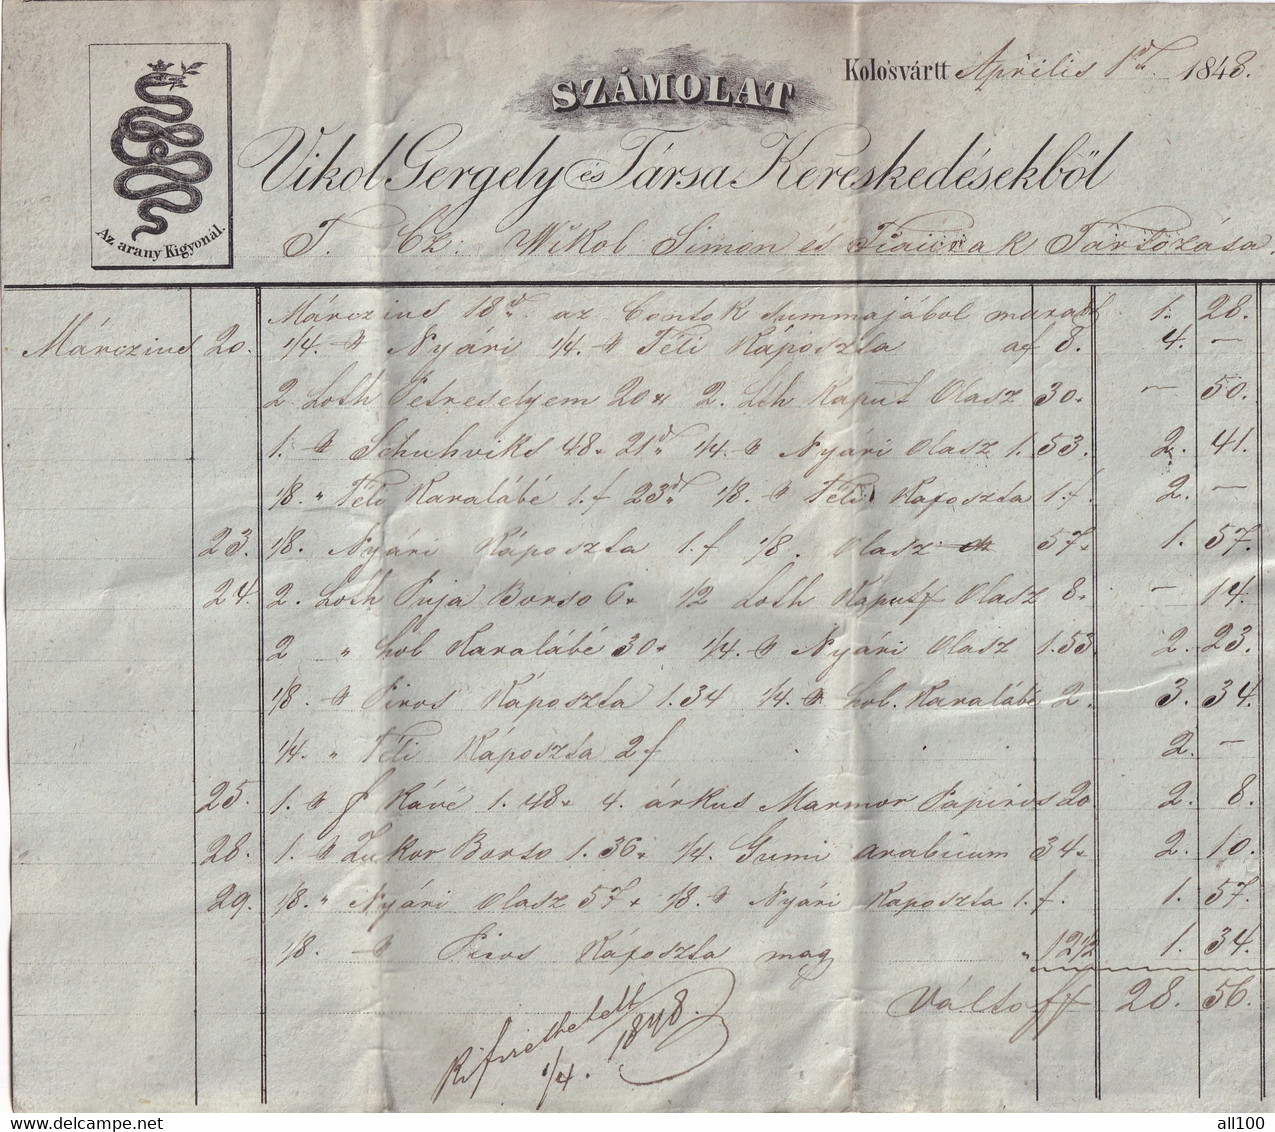 Az arany Kigyonál.
SZÁMOLAT
Kolo'svártt Április 1ső 1848.
Vikol Gergely és Társa Kereskedésekböl
T. Cz: Wikol Simon és Fiainak Tartozása
Márczius 18ról az Contok Summajából maradt 1. 28.
Márczius 20. 1/4. Nyári 1/4. Téli Káposzta af 8. 4. —
2. Loth Petreselyem 20 x 2. Lth Kaput Olasz 30. — 50.
1. Schuhviks 48 x 21 1/4. Nyári Olasz 1. 53. 2. 41.
1/8. " Téli Karalábé 1. f 23 1/8. Téli Kaposzta 1. f. 2. —
23. 1/8. Nyári Káposzta 1. f 1/8. Olasz 57 x 1. 57.
24. 2. Loth Puja Borso 6 x 1/2 Loth Káput Olasz 8. — 14.
2 " hol Karalábé 30 x 1/4. Nyári Olasz 1.53. 2. 23.
1/8. Piros Káposzta 1. 34 1/4. hol. Karalábé 2. 3. 34.
1/4. " Téli Káposzta 2 f 2. —
25. 1. f Kávé 1. 48 x 4. árkus Marmor Papiros 20 2. 8.
28. 1. Zukor Borso 1. 36 x 1/4. Gumi arabicum 34 x 2. 10.
29. 1/8. " Nyári Olasz 57 x 1/8. Nyári Kaposzta 1. f. 1. 57.
1/8. Piros Káposzta mag 1. 34.
Válto ff 28. 56.
Kifizethetett
1/4. 1848.
delcampe.net
all100